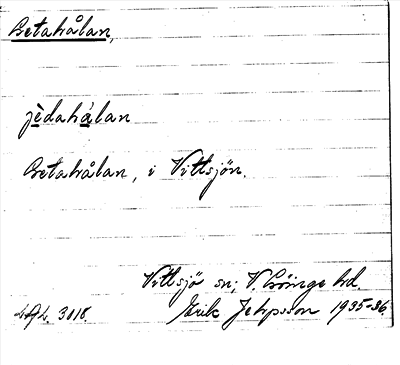 Getahålan,
jèdahålan
Getahålan, i Vittsjön.
Vittsjö sn; V. Göinge hd.
3018. Erik Jeppsson 1935-36.